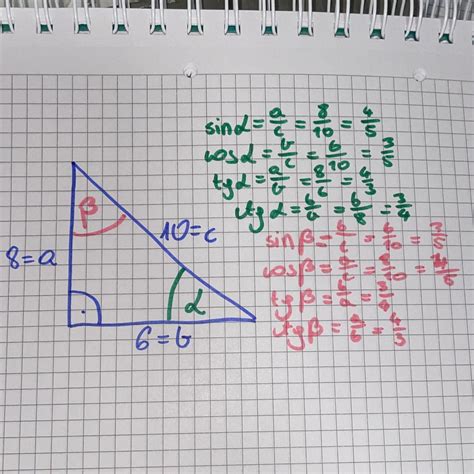 sin α = a/c = 8/10 = 4/5
cos α = b/c = 6/10 = 3/5
tg α = a/b = 8/6 = 4/3
ctg α = b/a = 6/8 = 3/4
sin β = b/c = 6/10 = 3/5
cos β = a/c = 8/10 = 4/5
tg β = b/a = 3/4
ctg β = a/b = 4/3
β
10 = c
8 = a
α
6 = b